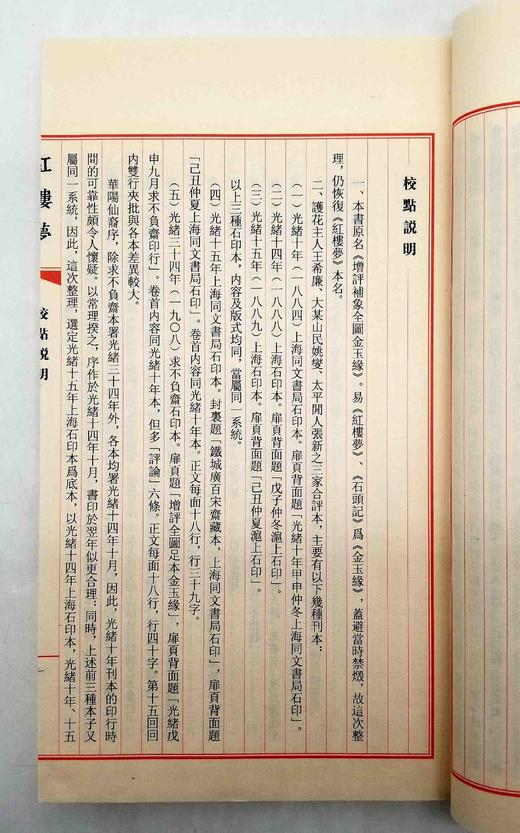 校點説明
一、本書原名《增評補象全圖金玉緣》。易《紅樓夢》、《石頭記》爲《金玉緣》，蓋避當時禁燬，故這次整
理，仍恢復《紅樓夢》本名。
二、護花主人王希廉、大某山民姚燮、太平閒人張新之三家合評本，主要有以下幾種刊本：
（一）光緒十年（一八八四）上海同文書局石印本。扉頁背面題「光緒十年甲申仲冬上海同文書局石印」。
（二）光緒十四年（一八八八）上海石印本。扉頁背面題「戊子仲冬滬上石印」。
（三）光緒十五年（一八八九）上海石印本。扉頁背面題「己丑仲夏滬上石印」。
以上三種石印本，内容及版式均同，當屬同一系統。
（四）光緒十五年上海同文書局石印本。封裏題「鐵城廣百宋齋藏本，上海同文書局石印」，扉頁背面題
「己丑仲夏上海同文書局石印」。卷首内容同光緒十年本。正文每面十八行，行三十九字。
（五）光緒三十四年（一九〇八）求不負齋石印本。扉頁題「增評全圖足本金玉緣」，扉頁背面題「光緒戊
申九月求不負齋印行」。卷首内容同光緒十年本，但多「評論」六條。正文每面十八行，行四十字。第十五回回
内雙行夾批與各本差異較大。
華陽仙裔序，除求不負齋本署光緒三十四年外，各本均署光緒十四年十月，因此，光緒十年刊本的印行時
間的可靠性頗令人懷疑。以常理揆之，序作於光緒十四年十月，書印於翌年似更合理；同時，上述前三種本子又
屬同一系統，因此，這次整理，選定光緒十五年上海石印本爲底本，以光緒十四年上海石印本，光緒十年、十五
紅樓夢
校點説明
一